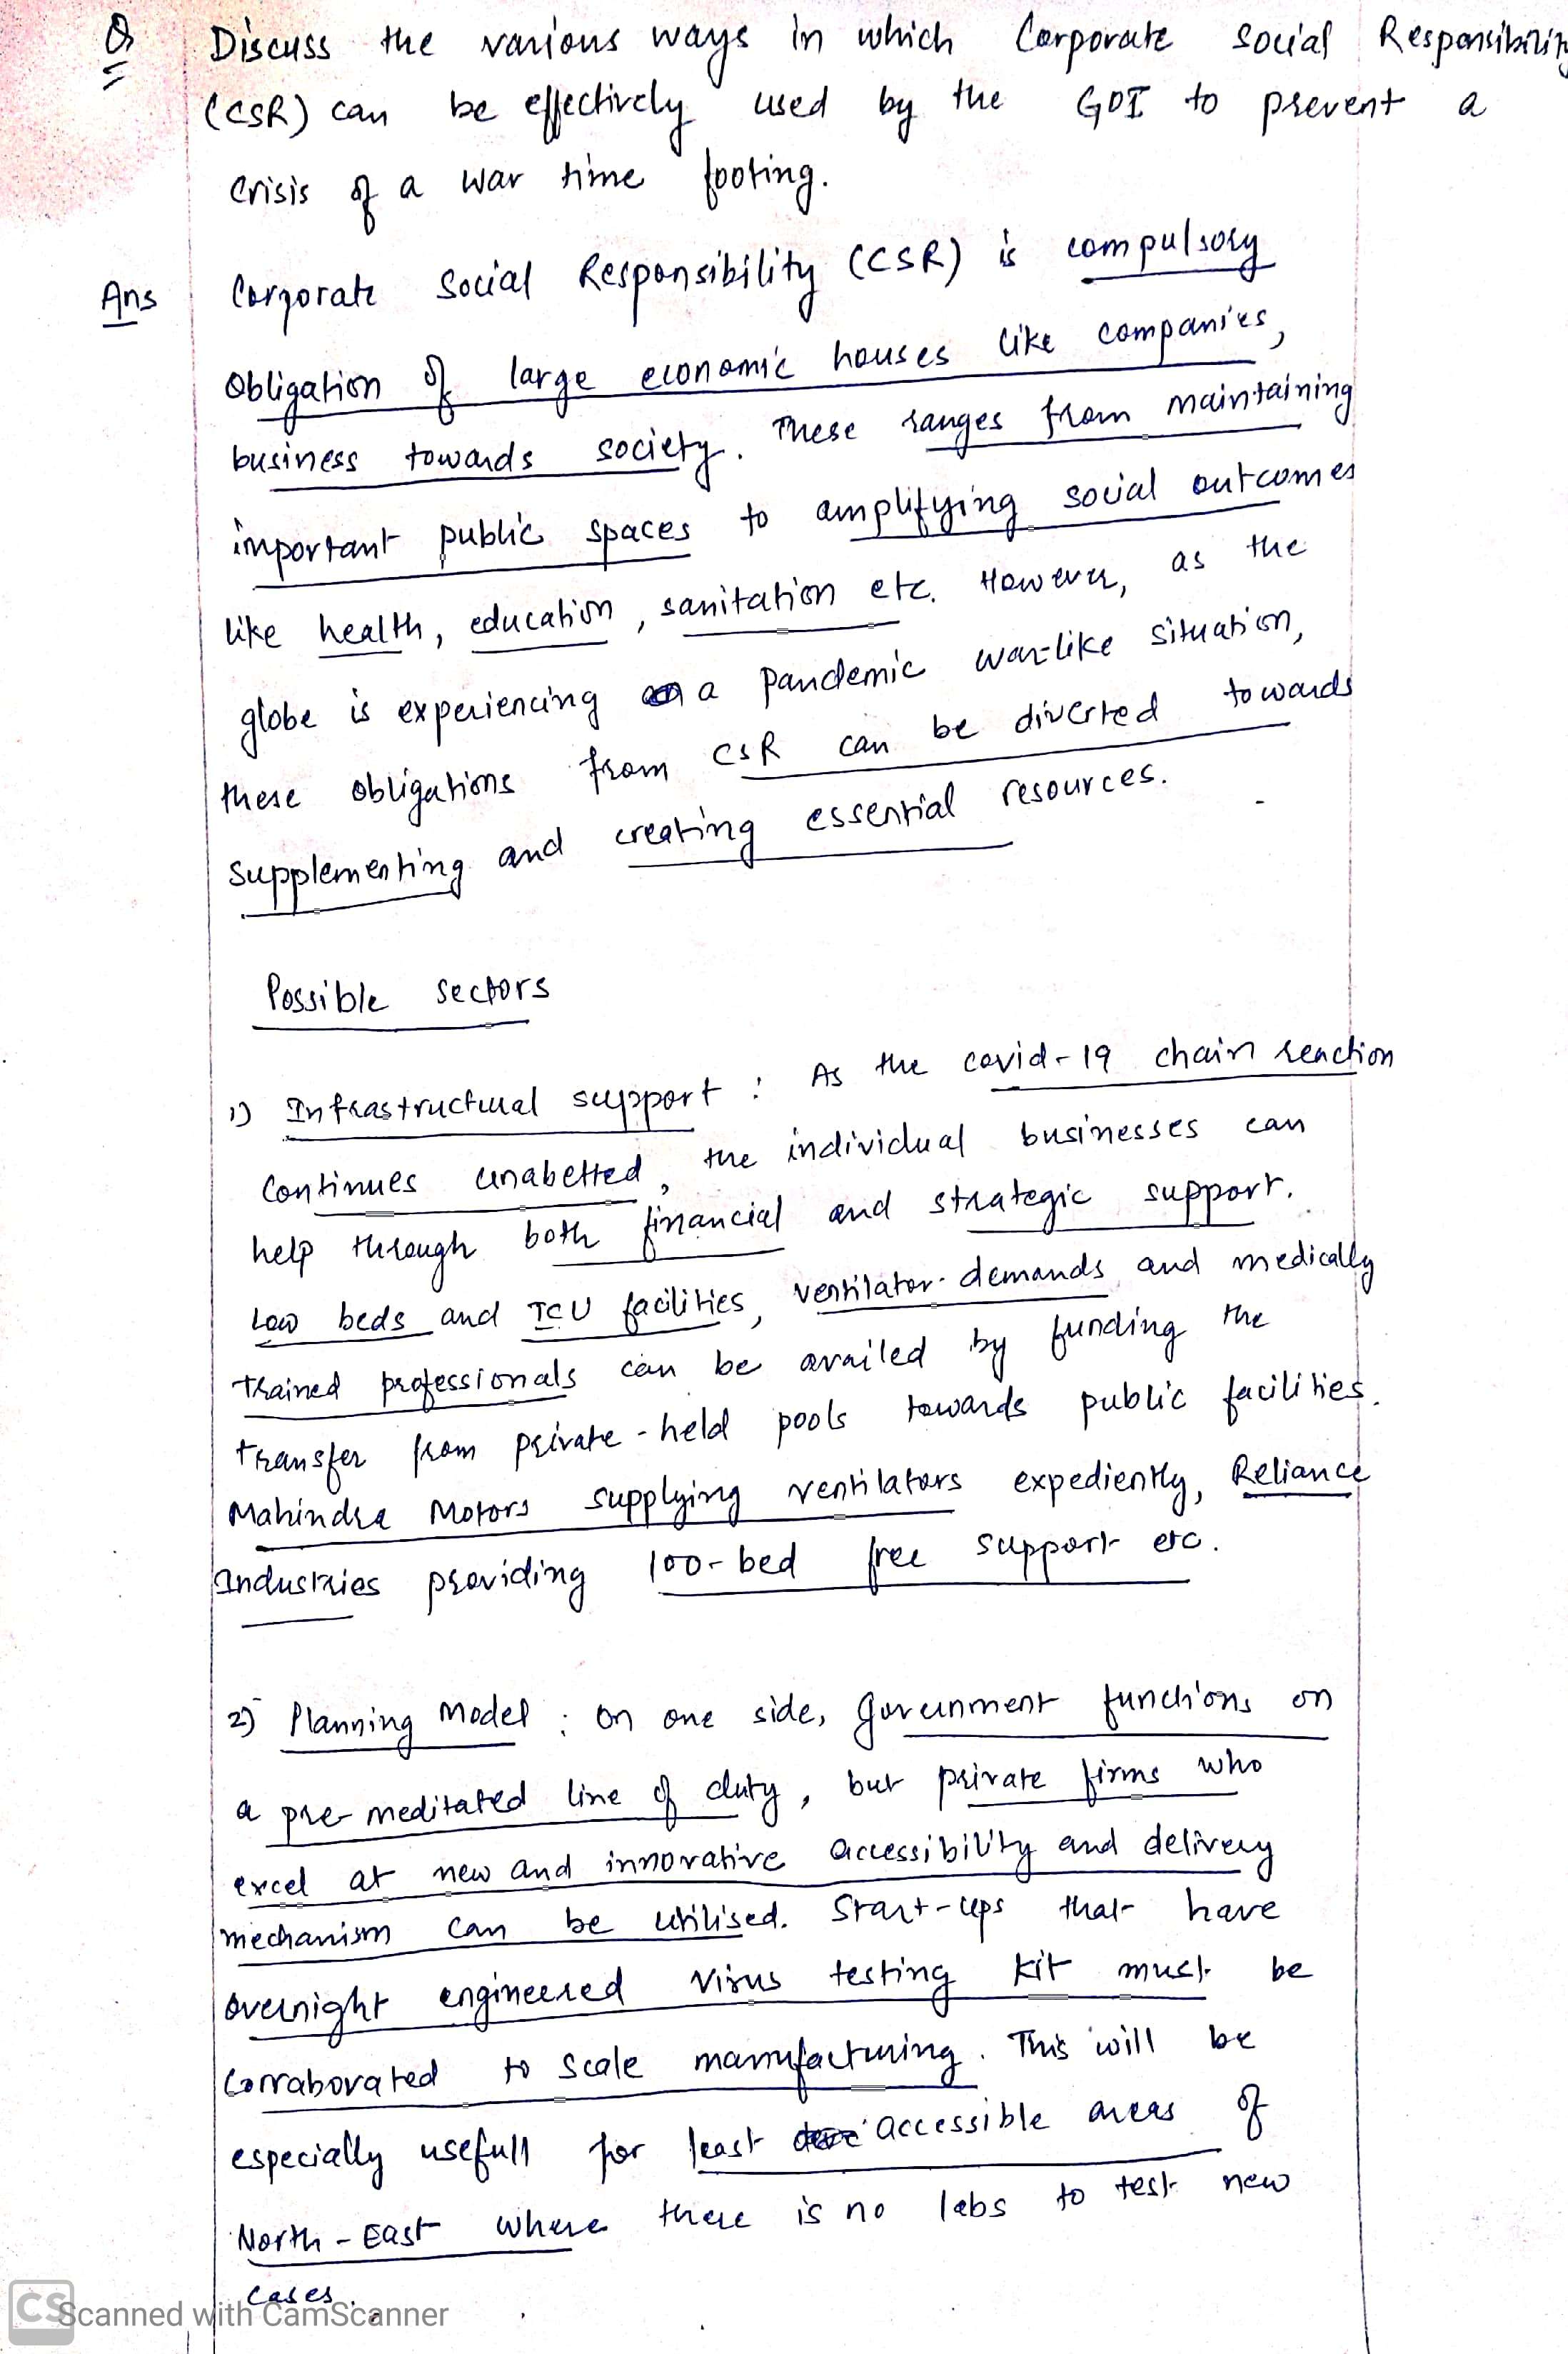 Q Discuss the various ways in which Corporate Social Responsibility
(CSR) can be effectively used by the GOI to prevent a
crisis of a war time footing.
Ans Corporate Social Responsibility (CSR) is compulsory
obligation of large economic houses like companies,
business towards society. These ranges from maintaining
important public spaces to amplifying social outcomes
like health, education, sanitation etc. However, as the
globe is experiencing a pandemic war-like situation,
these obligations from CSR can be diverted towards
supplementing and creating essential resources.
Possible sectors
1) Infrastructural support : As the covid-19 chain reaction
continues unabetted, the individual businesses can
help through both financial and strategic support.
Low beds and ICU facilities, ventilator demands and medically
trained professionals can be availed by funding the
transfer from private-held pools towards public facilities.
Mahindra Motors supplying ventilators expediently, Reliance
Industries providing 100-bed free support etc.
2) Planning Model : On one side, government functions on
a pre-meditated line of duty, but private firms who
excel at new and innovative accessibility and delivery
mechanism can be utilised. Start-ups that have
overnight engineered virus testing kit must be
corraborated to scale manufacturing. This will be
especially usefull for least accessible areas of
North-East where there is no labs to test new
cases.
CS Scanned with CamScanner